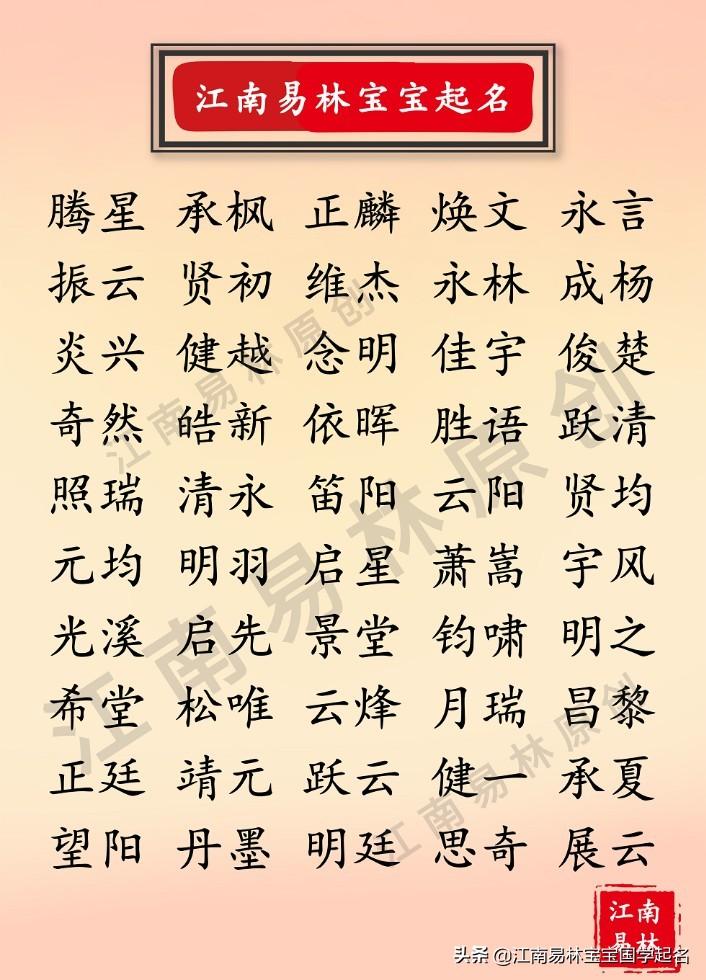 江南易林宝宝起名
腾星 承枫 正麟 焕文 永言
振云 贤初 维杰 永林 成杨
炎兴 健越 念明 佳宇 俊楚
奇然 皓新 依晖 胜语 跃清
照瑞 清永 笛阳 云阳 贤均
元均 明羽 启星 萧嵩 宇风
光溪 启先 景堂 钧啸 明之
希堂 松唯 云烽 月瑞 昌黎
正廷 靖元 跃云 健一 承夏
望阳 丹墨 明廷 思奇 展云
江南易林原创
江南易林原创
江南易林原创
江南
易林
头条 @江南易林宝宝国学起名